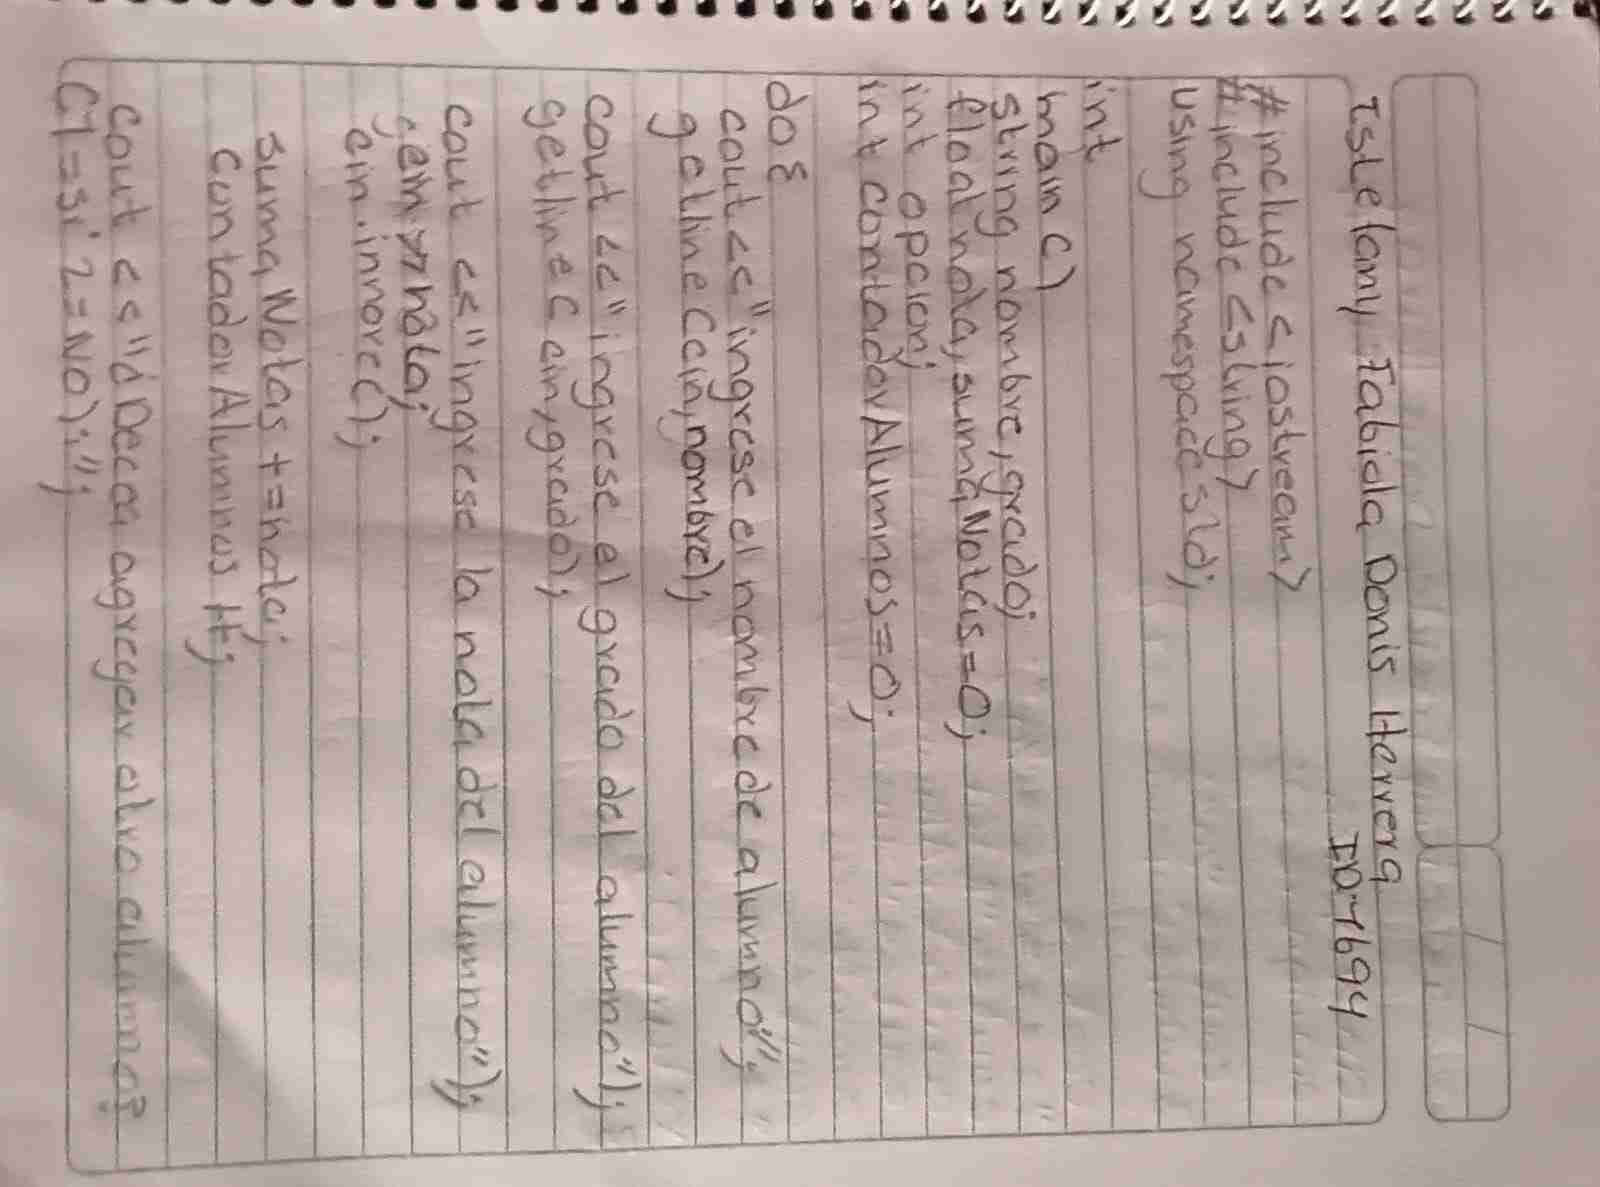 Istefany Fabiola Donis Herrera
ID:7694
#include <iostream>
#include <string>
using namespace std;
int
main()
string nombre, grado;
float nota, sumaNotas=0;
int opcion;
int contadorAlumnos=0;
do{
cout<<"ingrese el nombre de alumno";
getline(cin,nombre);
cout<<"ingrese el grado del alumno");
getline(cin,grado);
cout <<"ingrese la nota del alumno");
cin>>nota;
cin.innore();
sumaNotas+=nota;
ContadorAlumnos++;
cout <<"¿Decea agregar otro alumno?
(1=si 2=NO):";